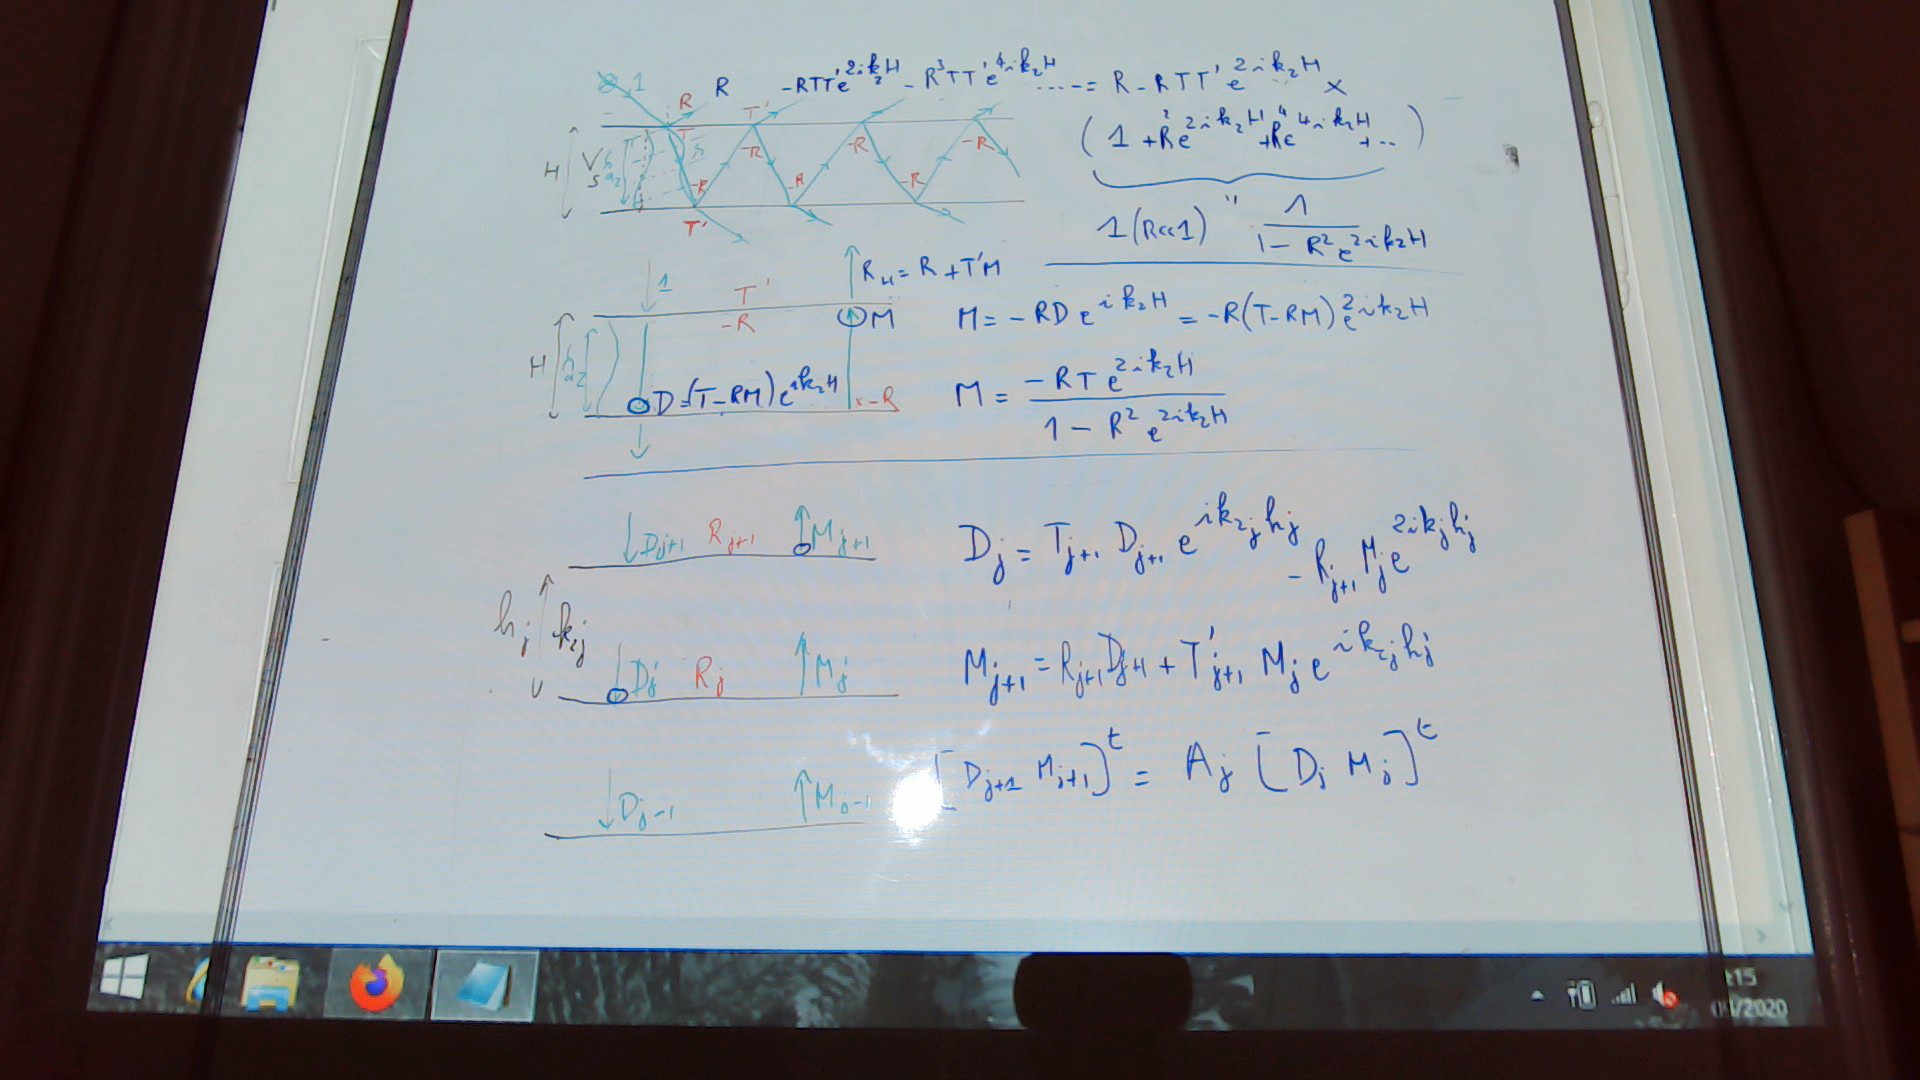 1 R R -RTT'e^{2ik_2H} - R^3TT'e^{4ik_2H} ..... = R - RTT' e^{2ik_2H} ×
T T'
H V_s h a_2 h -R -R -R -R -R -R
( 1 + R^2e^{2ik_2H} + R^4e^{4ik_2H} + .. )
T'
1 (R<<1) " 1 / 1 - R^2 e^{2ik_2H}
1 T' R_H = R + T'M
-R M M = - RD e^{ik_2H} = -R(T-RM) e^{2ik_2H}
H h a_2 D = (T-RM) e^{ik_2H} × -R
M = -RT e^{2ik_2H} / 1 - R^2 e^{2ik_2H}
D_{j+1} R_{j+1} M_{j+1} D_j = T_{j+1} D_{j+1} e^{ik_{2j}h_j} - R_{j+1} M_j e^{2ik_jh_j}
h_j k_{2j}
D_j R_j M_j M_{j+1} = R_{j+1} D_{j+1} + T'_{j+1} M_j e^{ik_{2j}h_j}
D_{j-1} M_{j-1} [D_{j+1} M_{j+1}]^t = A_j [D_j M_j]^t
:15
/2020